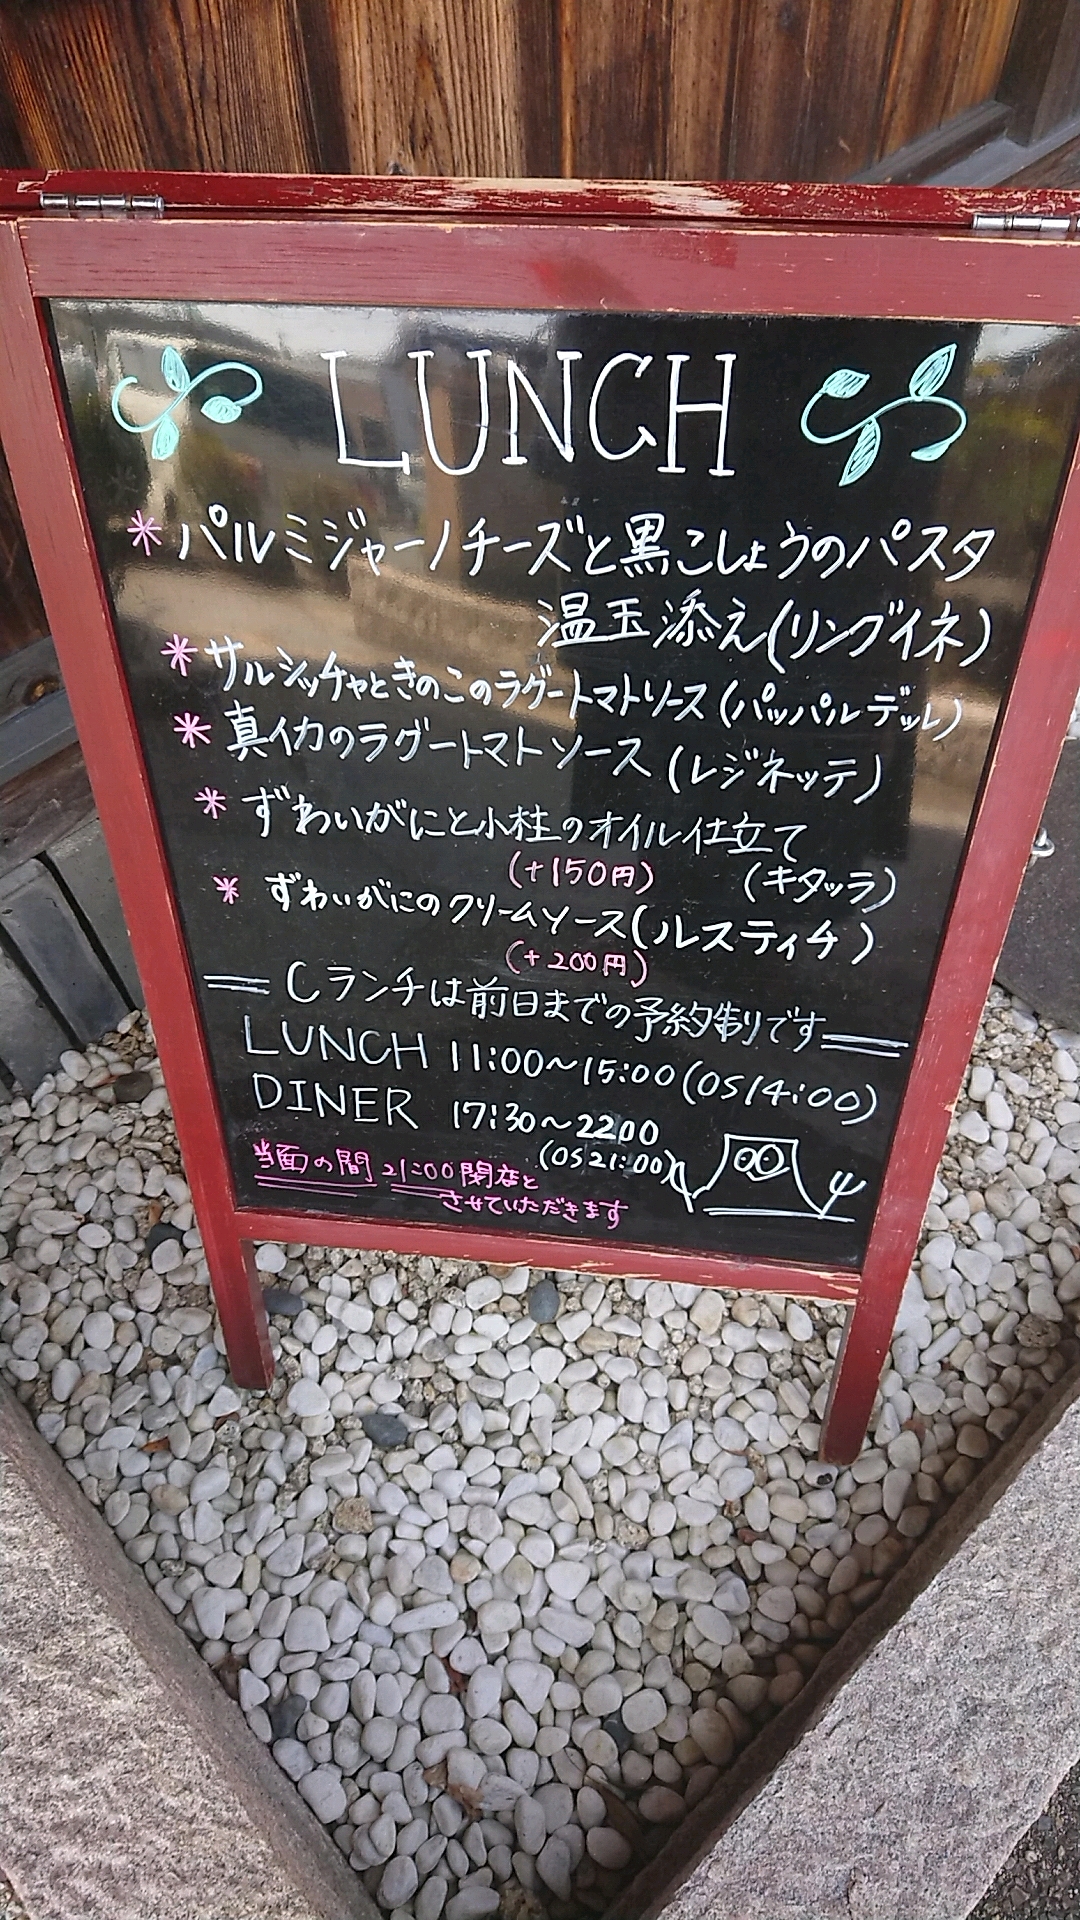 LUNCH
* パルミジャーノチーズと黒こしょうのパスタ
温玉添え(リングイネ)
* サルシッチャときのこのラグートマトソース(パッパルデッレ)
* 真イカのラグートマトソース(レジネッテ)
* ずわいがにと小柱のオイル仕立て
(+150円) (キタッラ)
* ずわいがにのクリームソース(ルスティチ)
(+200円)
Cランチは前日までの予約制です
LUNCH 11:00〜15:00(OS14:00)
DINER 17:30〜2200
(OS21:00)
当面の間 21:00閉店と
させていただきます